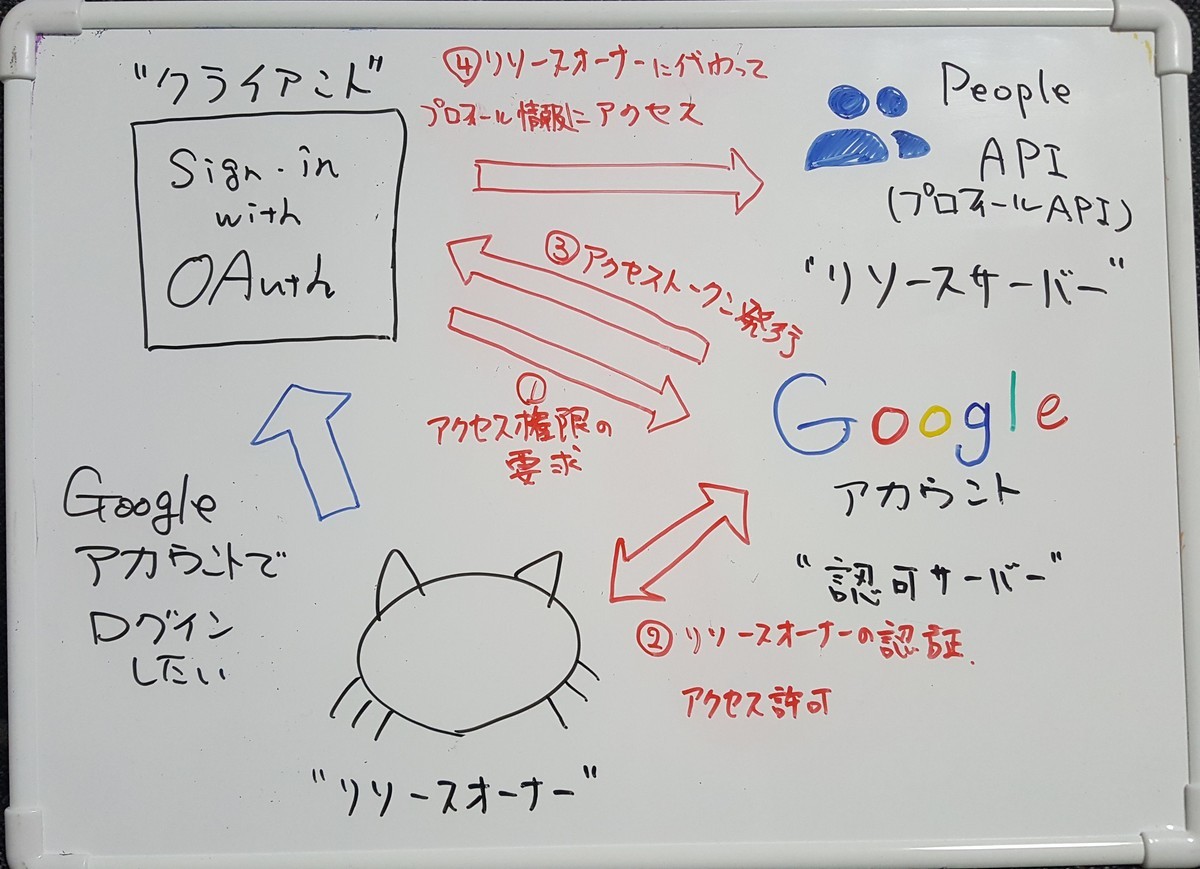 "クライアント"
Sign-in
with
OAuth
④リソースオーナーに代わって
プロフィール情報にアクセス
People
API
(プロフィールAPI)
"リソースサーバー"
③アクセストークン発行
①
アクセス権限の
要求
Google
アカウント
"認可サーバー"
②リソースオーナーの認証、
アクセス許可
Google
アカウントで
ログイン
したい
"リソースオーナー"